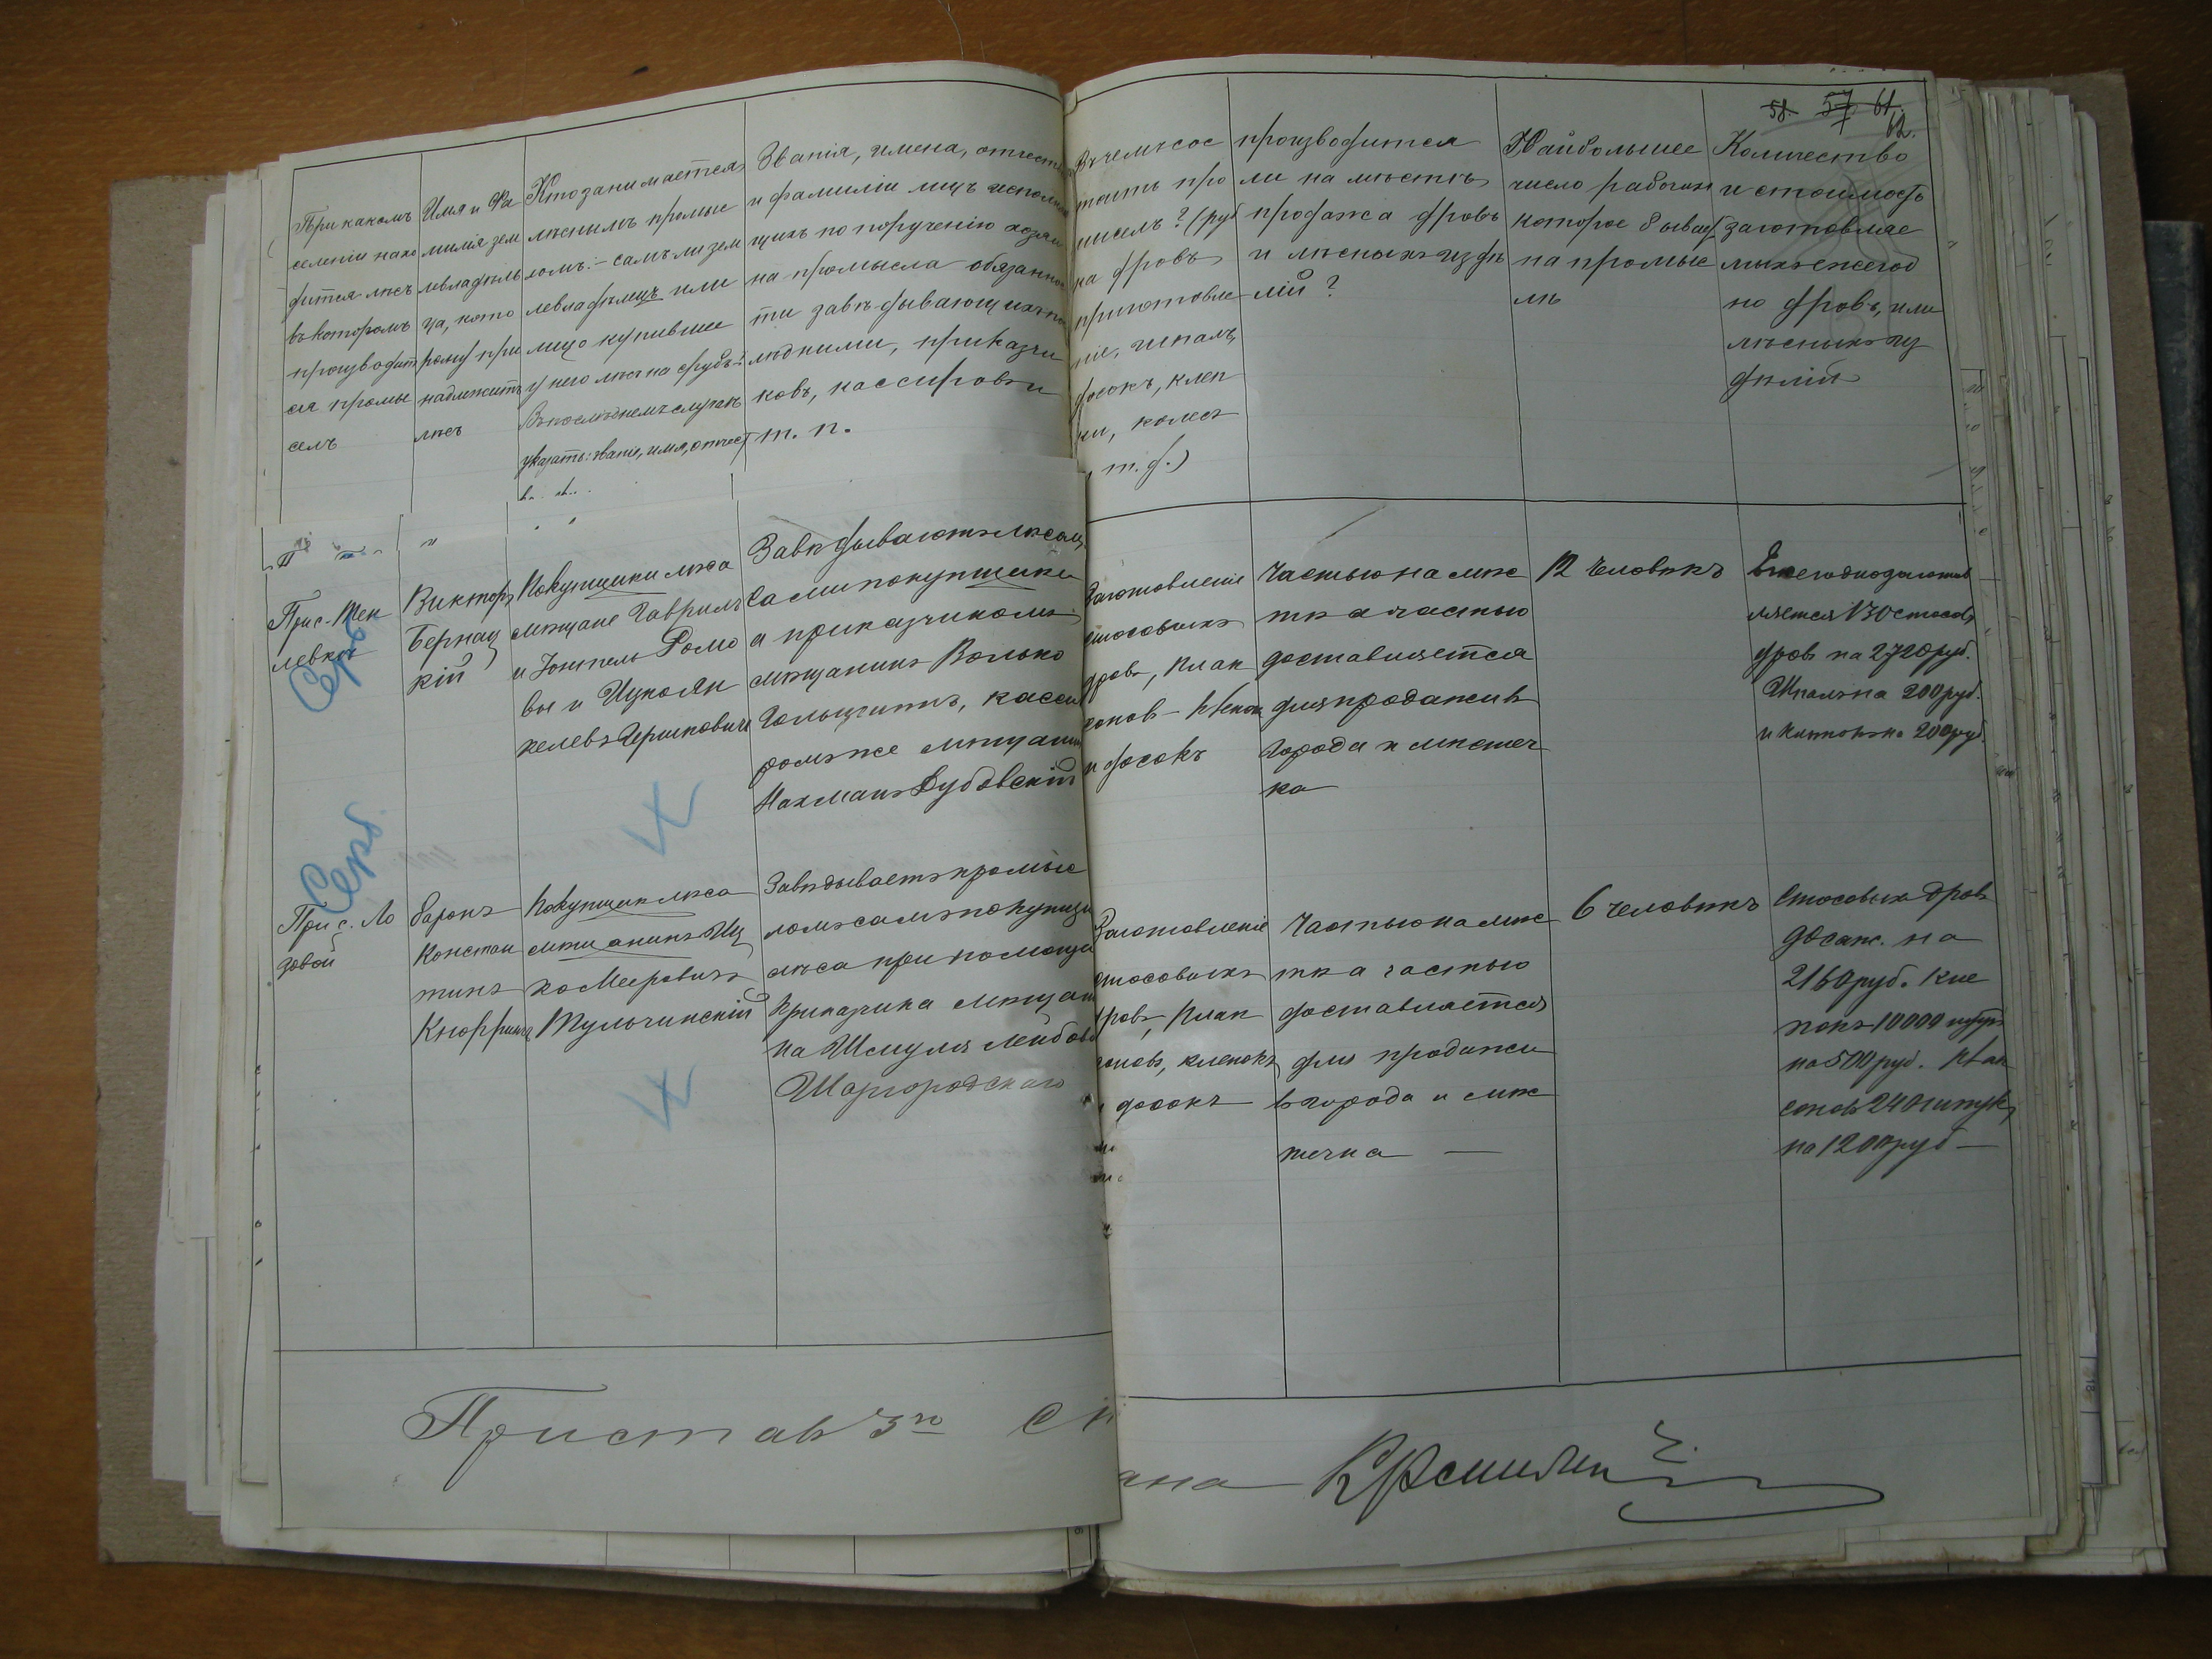 58 57 61.
62.
При какомъ
селеніи нахо
дится лѣсъ
въ которомъ
производит
ся промы
селъ
Имя и Фа
милія зем
левладѣль
ца, кото
рому при
надлежитъ
лѣсъ
Кто занимается
лѣснымъ промыс
ломъ:- самъ ли зем
левладѣлецъ или
лицо купившее
у него лѣсъ на срубъ?
Въ послѣднемъ случаѣ
указать: званіе, имя, отчест
Званія, имена, отчест
и фамиліи лицъ исполня
щихъ по порученію хозяи
на промысла обязаннос
ти завѣдывающихъ по
людными, приказчи
ковъ, кассировъ и
т. п.
Въ чемъ сос
таитъ про
мыселъ? (руб
ка дровъ
приготовле
ніе, шпалъ,
досокъ, клеп
ки, колесъ
т. д.)
производится
ли на мѣстѣ
продажа дровъ
и лѣсныхъ издѣ
лій?
Наибольшее
число рабочихъ
которое бываетъ
на промыс
лѣ
Количество
и стоимость
заготовляе
мыхъ ежегод
но дровъ, или
лѣсныхъ из
дѣлій
При с. Тен
левкѣ
Серб
Викторъ
Бернац
кій
Покупщики лѣса
мѣщане Гаврилъ
и Іоипель Ромо
вы и Ицко Ян
келевъ Гершковичъ
Завѣдываютъ лѣсомъ
сами покупщики
а приказчикомъ
мѣщанинъ Волько
Гольцгитъ, касси
ромъ же мѣщанинъ
Нахманъ Дубовскій
Заготовленіе
стосовыхъ
дровъ, план
соновъ - клепокъ
и досокъ
Частью на мѣс
тѣ а частью
доставляется
для продажи въ
города и мѣстеч
ка
12 человѣкъ
Ежегодно заготов
ляется 130 стосовъ
дровъ на 2720 руб.
Шпалъ на 200 руб.
и клепокъ на 200 руб.
Серб
При с. Ло
зовой
баронъ
Констан
тинъ
Кноррингъ
Покупщикъ лѣса
мѣщанинъ Иц
ко Мееровичъ
Тульчинскій
Завѣдываетъ промыс
ломъ самъ покупщикъ
лѣса при помощи
приказчика мѣщани
на Шмуля Лейбова
Шаргородскаго
Заготовленіе
стосовыхъ
дровъ, план
соновъ, клепокъ
и досокъ
Частью на мѣс
тѣ а частью
доставляется
для продажи
въ города и мѣс
течка —
6 человѣкъ
Стосовыхъ дровъ
90 саж. на
2160 руб. Кле
покъ 10000 штукъ
на 500 руб. План
соновъ 240 штукъ
на 1200 руб —
Приставъ 3го стана